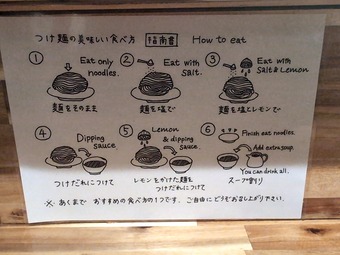 つけ麺の美味しい食べ方 指南書 How to eat
① Eat only noodles.
麺をそのまま
② Eat with Salt.
麺を塩で
③ Eat with Salt & Lemon
麺を塩とレモンで
④ Dipping sauce
つけだれにつけて
⑤ Lemon & dipping sauce.
レモンをかけた麺をつけだれにつけて
⑥ Finish eat noodles.
Add extra soup.
You can drink all.
スープ割り
※ あくまで おすすめの食べ方の1つです。ご自由にどうぞお召し上がり下さい。